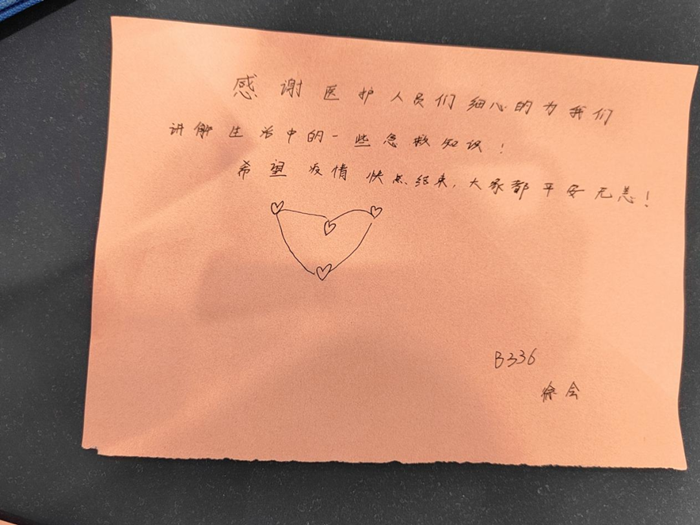 感谢医护人员们细心的为我们
讲解生活中的一些急救知识!
希望疫情快点结束,大家都平安无恙!
B336
徐会